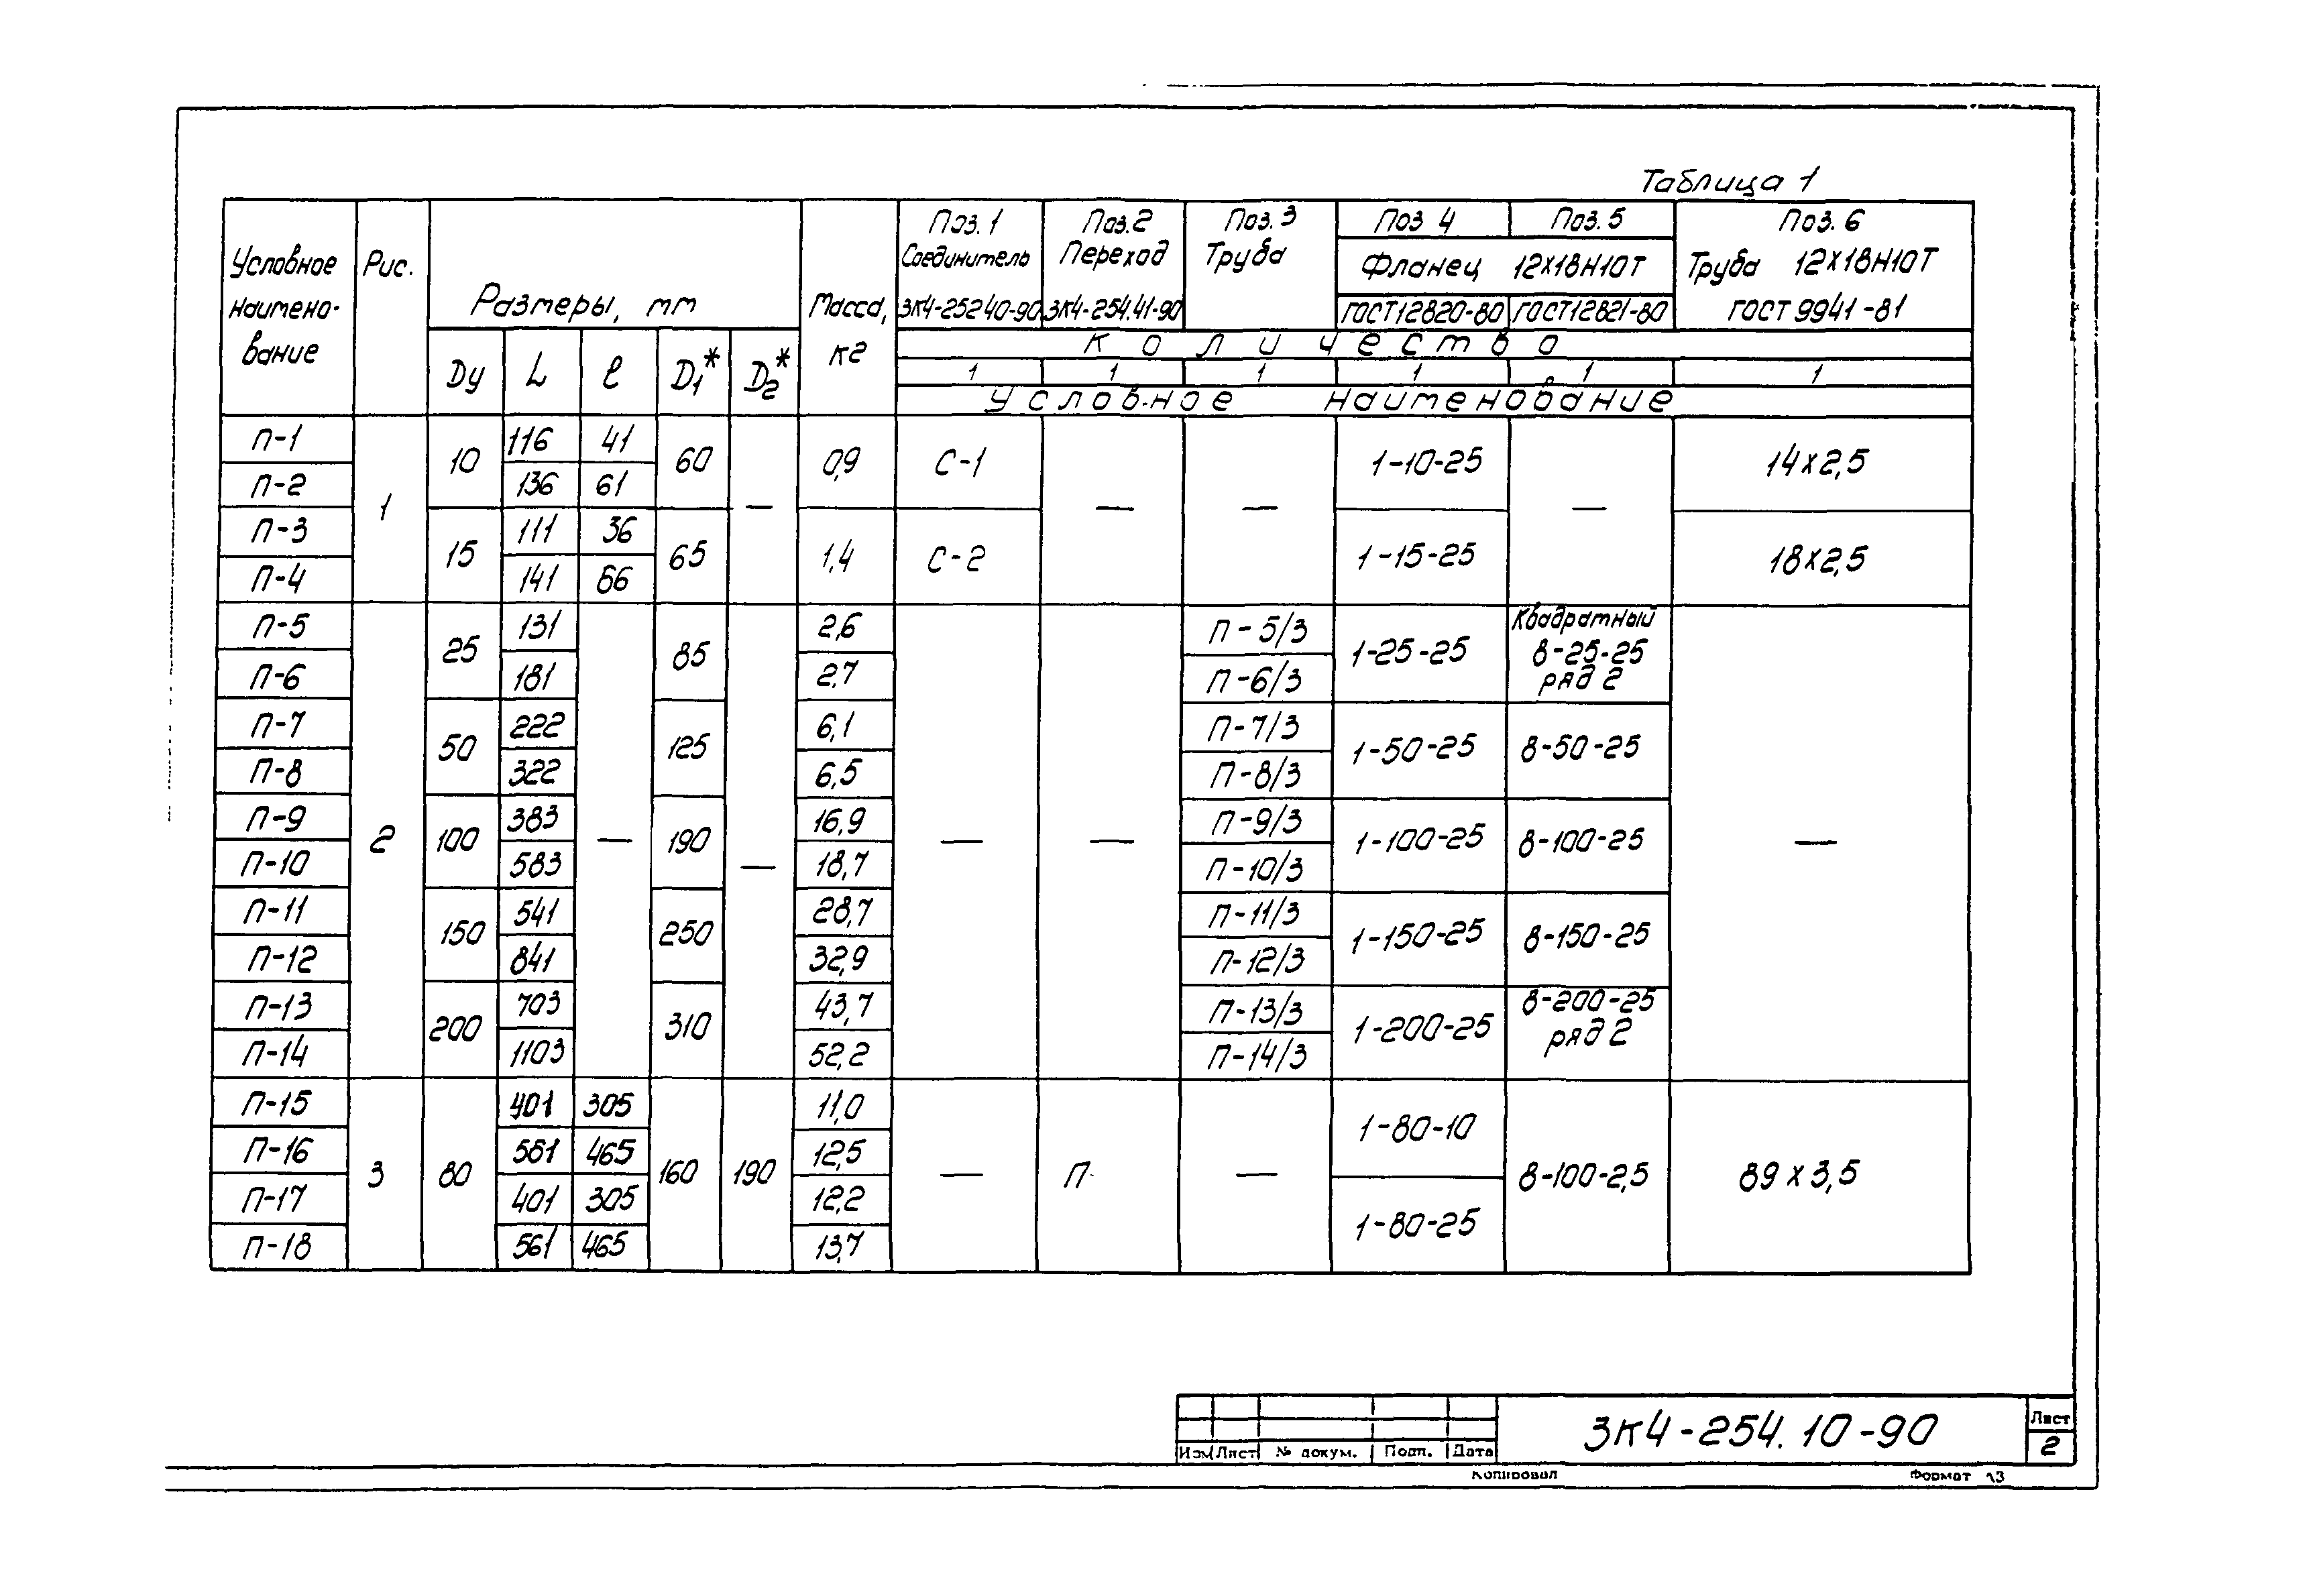 Таблица 1
Условное наимено-вание | Рис. | Размеры, мм | Масса, кг | Поз.1 Соединитель ЗК4-25240-90 | Поз.2 Переход ЗК4-254.41-90 | Поз.3 Труба | Поз 4 | Поз.5 | Поз.6 Труба 12Х18Н10Т ГОСТ 9941-81
Фланец 12Х18Н10Т
ГОСТ12820-80 | ГОСТ12821-80
Количество
Dу | L | ℓ | D1* | D2* | 1 | 1 | 1 | 1 | 1 | 1
Условное наименование
П-1 | 1 | 10 | 116 | 41 | 60 | — | 0,9 | С-1 | — | — | 1-10-25 | — | 14х2,5
П-2 | 136 | 61
П-3 | 15 | 111 | 36 | 65 | 1,4 | С-2 | 1-15-25 | 18х2,5
П-4 | 141 | 66
П-5 | 2 | 25 | 131 | — | 85 | — | 2,6 | — | — | П-5/3 | 1-25-25 | Квадратный 8-25-25 ряд 2 | —
П-6 | 181 | 2,7 | П-6/3
П-7 | 50 | 222 | 125 | 6,1 | П-7/3 | 1-50-25 | 8-50-25
П-8 | 322 | 6,5 | П-8/3
П-9 | 100 | 383 | 190 | 16,9 | П-9/3 | 1-100-25 | 8-100-25
П-10 | 583 | 18,7 | П-10/3
П-11 | 150 | 541 | 250 | 28,7 | П-11/3 | 1-150-25 | 8-150-25
П-12 | 841 | 32,9 | П-12/3
П-13 | 200 | 703 | 310 | 43,7 | П-13/3 | 1-200-25 | 8-200-25 ряд 2
П-14 | 1103 | 52,2 | П-14/3
П-15 | 3 | 80 | 401 | 305 | 160 | 190 | 11,0 | — | П- | — | 1-80-10 | 8-100-2,5 | 89х3,5
П-16 | 561 | 465 | 12,5
П-17 | 401 | 305 | 12,2 | 1-80-25
П-18 | 561 | 465 | 13,7
ЗК4-254.10-90
Лист
2
Изм | Лист | № докум. | Подп. | Дата
Копировал Формат А3